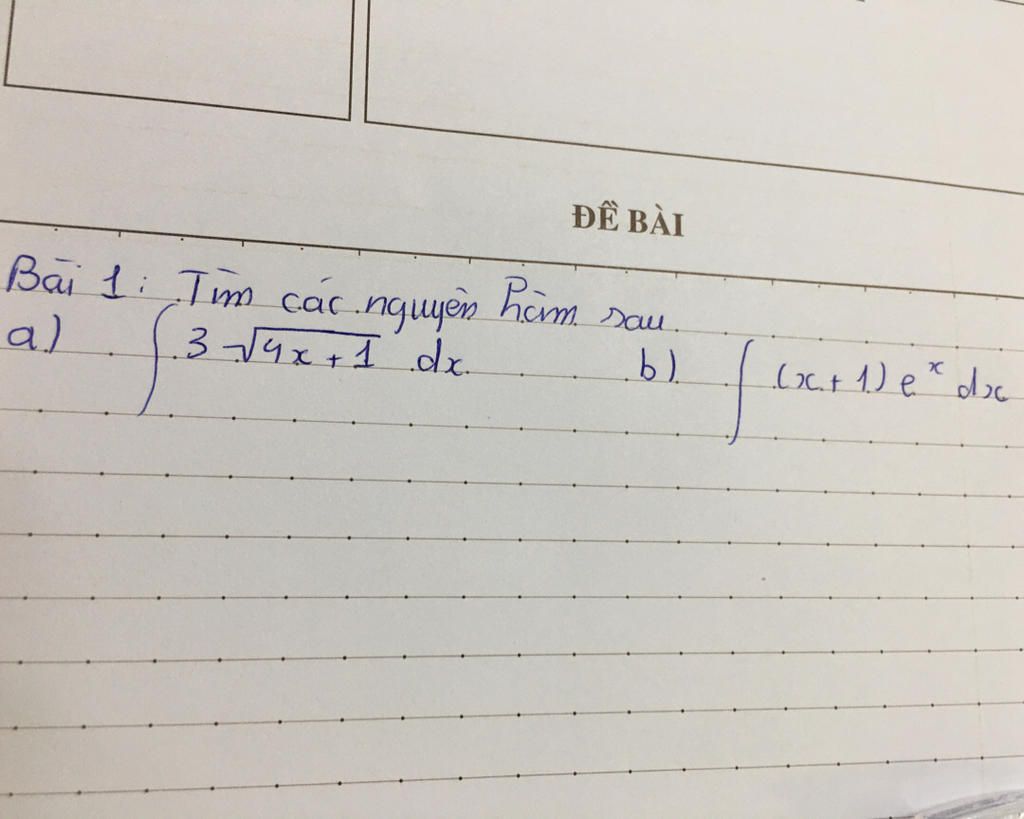 ĐỀ BÀI
Bài 1: Tìm các nguyên hàm sau
a) ∫ 3√(4x + 1) dx b) ∫ (x + 1) eˣ dx